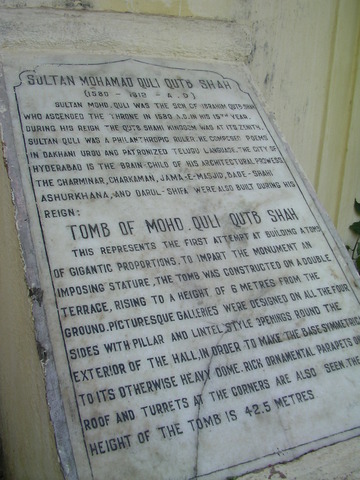 SULTAN MOHAMAD QULI QUTB SHAH
(1580 - 1612 - A.D)
SULTAN MOHD. QULI WAS THE SON OF IBRAHIM QUTB SHAH
WHO ASCENDED THE THRONE IN 1580 A.D IN HIS 15TH YEAR.
DURING HIS REIGN THE QUTB SHAHI KINGDOM WAS AT ITS ZENITH.
SULTAN QULI WAS A PHILANTHROPIC RULER. HE COMPOSED POEMS
IN DAKHANI URDU AND PATRONIZED TELUGU LANGUAGE. THE CITY OF
HYDERABAD IS THE BRAIN-CHILD OF HIS ARCHITECTURAL PROWESS
THE CHARMINAR, CHARKAMAN, JAMA-E-MASJID, BADE-SHAHI
ASHURKHANA, AND DARUL-SHIFA WERE ALSO BUILT DURING HIS
REIGN:
TOMB OF MOHD. QULI QUTB SHAH
THIS REPRESENTS THE FIRST ATTEMPT AT BUILDING A TOMB
OF GIGANTIC PROPORTIONS. TO IMPART THE MONUMENT AN
IMPOSING STATURE, THE TOMB WAS CONSTRUCTED ON A DOUBLE
TERRACE, RISING TO A HEIGHT OF 6 METRES FROM THE
GROUND. PICTURESQUE GALLERIES WERE DESIGNED ON ALL THE FOUR
SIDES WITH PILLAR AND LINTEL STYLE OPENINGS ROUND THE
EXTERIOR OF THE HALL, IN ORDER TO MAKE THE BASE SYMMETRIC
TO ITS OTHERWISE HEAVY DOME. RICH ORNAMENTAL PARAPETS ON
ROOF AND TURRETS AT THE CORNERS ARE ALSO SEEN. THE
HEIGHT OF THE TOMB IS 42.5 METRES